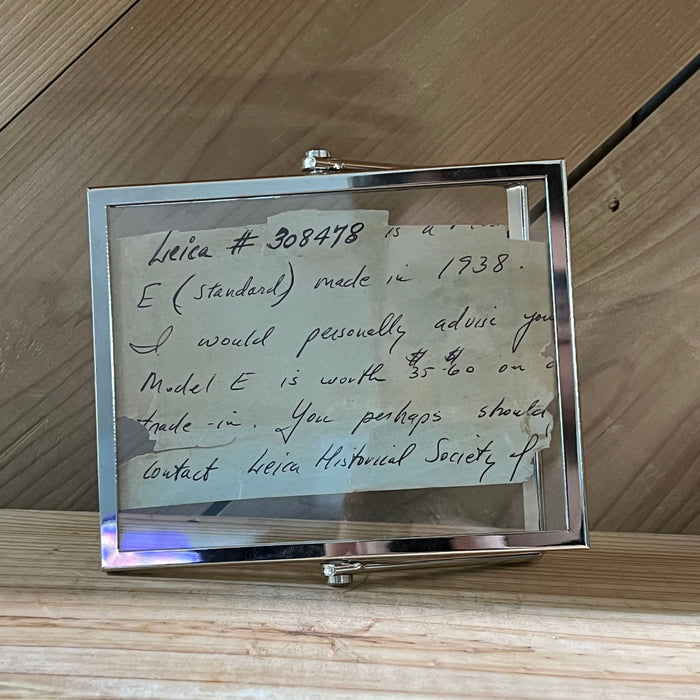 Leica # 308478 is a
E (Standard) made in 1938.
I would personally advise you
Model E is worth $35-$60 on a
trade-in. You perhaps should
contact Leica Historical Society of